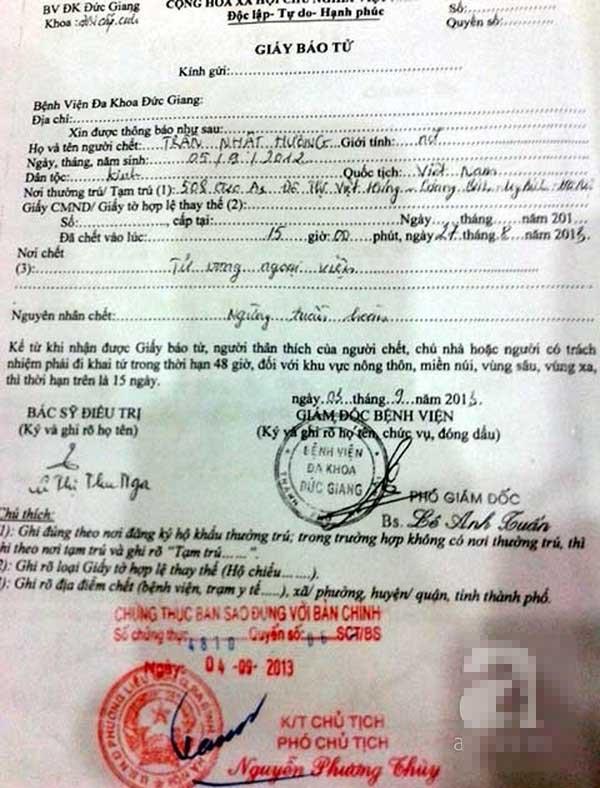 BV ĐK Đức Giang
Khoa:
CỘNG HÒA XÃ HỘI CHỦ NGHĨA VIỆT
Độc lập- Tự do- Hạnh phúc
Số:
Quyển số:
GIẤY BÁO TỬ
Kính gửi:
Bệnh Viện Đa Khoa Đức Giang:
Địa chỉ:
Xin được thông báo như sau:
Họ và tên người chết: TRẦN NHẬT HƯỜNG Giới tính: nữ
Ngày, tháng, năm sinh: 05/8/2012
Dân tộc: Kinh Quốc tịch: Việt Nam
Nơi thường trú/ Tạm trú (1): 508 Việt Hưng Long Biên
Giấy CMND/ Giấy tờ hợp lệ thay thế (2):
Số:, cấp tại: Ngày tháng năm 201
Đã chết vào lúc: 15 giờ 00 phút, ngày 27 tháng 8 năm 2013
Nơi chết
(3): Tử vong ngoại viện
Nguyên nhân chết: Ngừng tuần hoàn
Kể từ khi nhận được Giấy báo tử, người thân thích của người chết, chủ nhà hoặc người có trách
nhiệm phải đi khai tử trong thời hạn 48 giờ, đối với khu vực nông thôn, miền núi, vùng sâu, vùng xa,
thì thời hạn trên là 15 ngày.
ngày 03 tháng 9 năm 2013
BÁC SỸ ĐIỀU TRỊ
(Ký và ghi rõ họ tên)
GIÁM ĐỐC BỆNH VIỆN
(Ký và ghi rõ họ tên, chức vụ, đóng dấu)
BỆNH VIỆN
ĐA KHOA
ĐỨC GIANG
Lê Thị Thu Nga
PHÓ GIÁM ĐỐC
Bs. Lê Anh Tuấn
Chú thích:
1): Ghi đúng theo nơi đăng ký hộ khẩu thường trú; trong trường hợp không có nơi thường trú, thì
hi theo nơi tạm trú và ghi rõ "Tạm trú......".
2): Ghi rõ loại Giấy tờ hợp lệ thay thế (Hộ chiếu........).
): Ghi rõ địa điểm chết (bệnh viện, trạm y tế.....), xã/ phường, huyện/ quận, tỉnh thành phố.
CHỨNG THỰC BẢN SAO ĐÚNG VỚI BẢN CHÍNH
Số chứng thực 4810 Quyển số: 06 SCT/BS
Ngày 04-09-2013
K/T CHỦ TỊCH
PHÓ CHỦ TỊCH
Nguyễn Phương Thùy
a